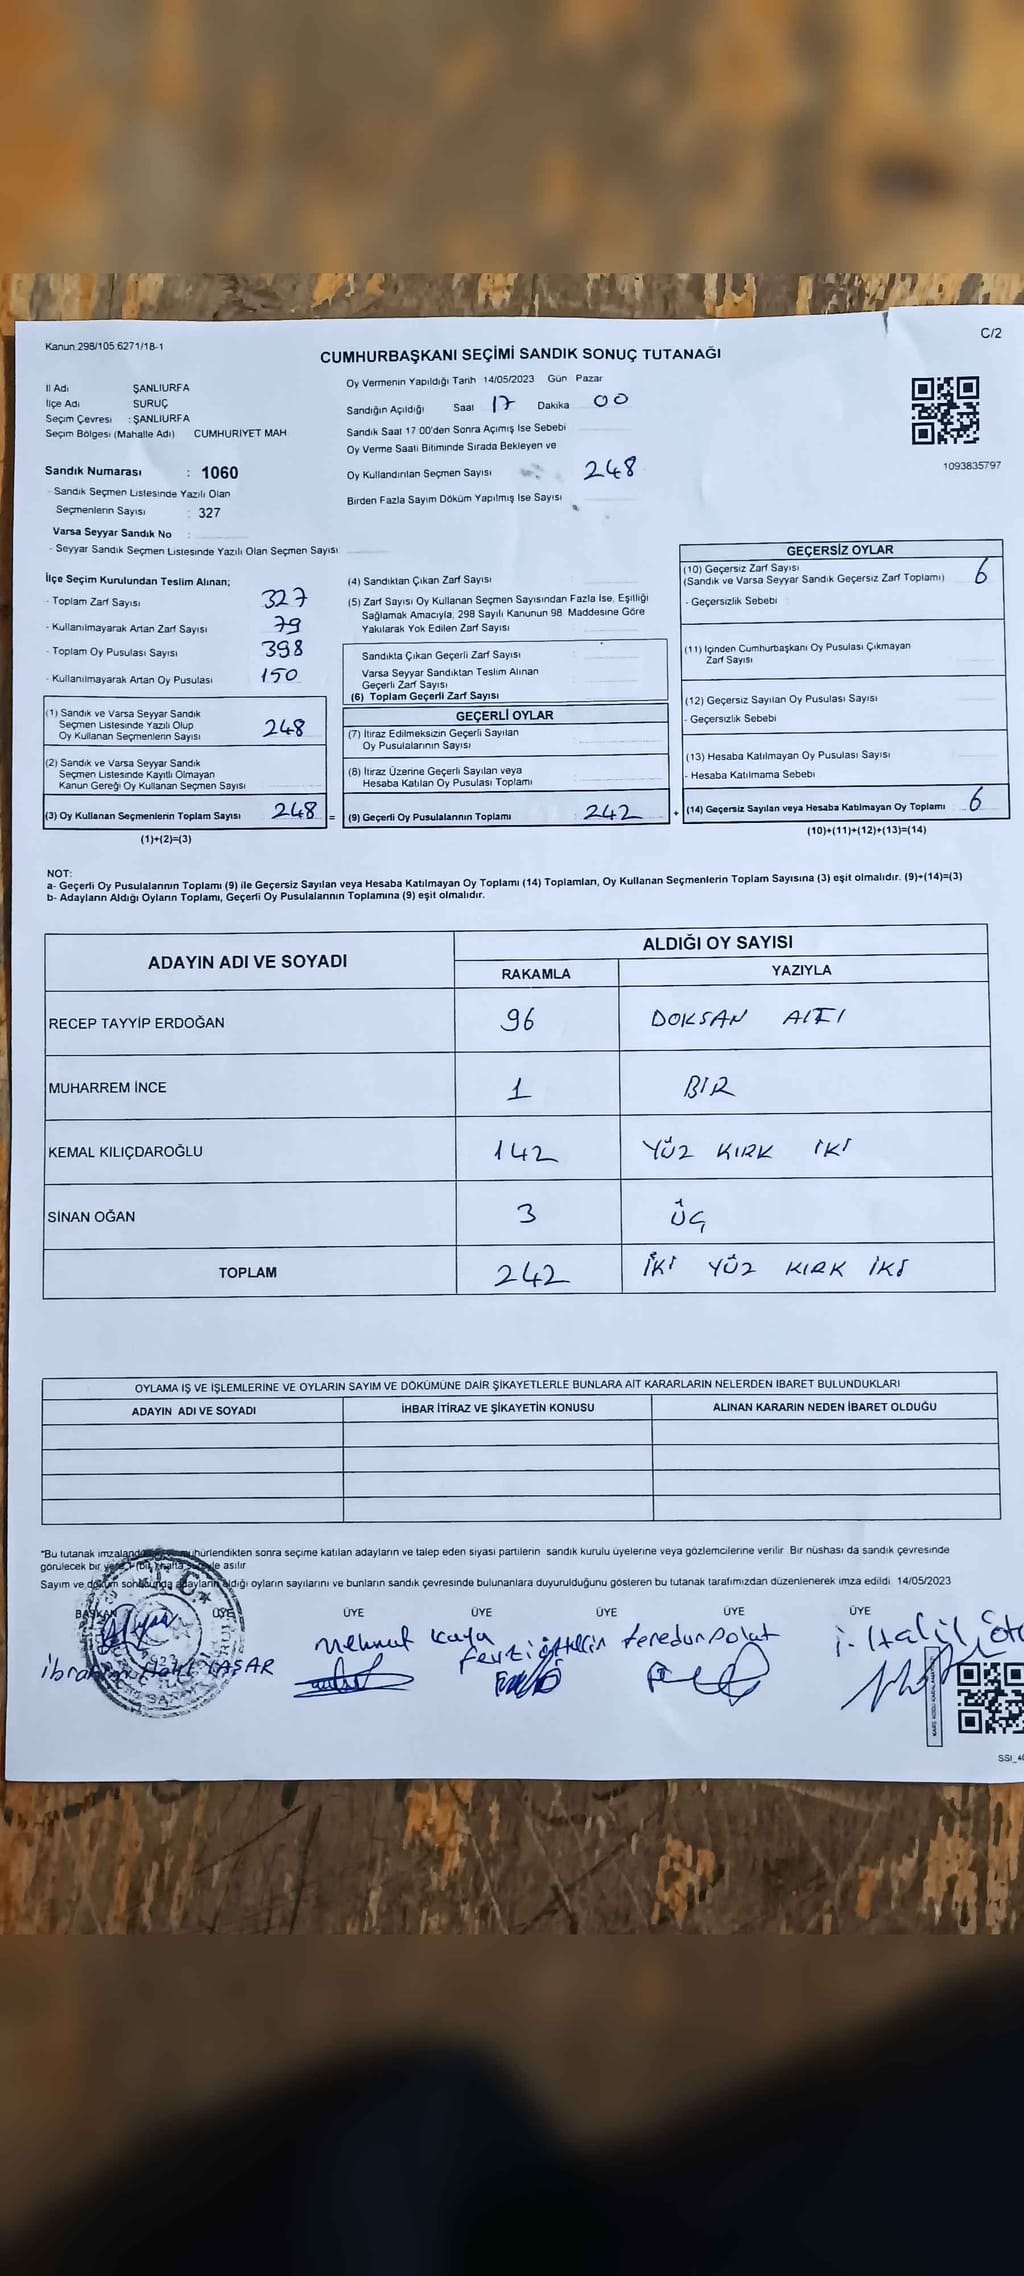 C/2
Kanun:298/105:6271/18-1
CUMHURBAŞKANI SEÇİMİ SANDIK SONUÇ TUTANAĞI
İl Adı ŞANLIURFA
İlçe Adı SURUÇ
Seçim Çevresi : ŞANLIURFA
Seçim Bölgesi (Mahalle Adı) CUMHURİYET MAH
Sandık Numarası : 1060
- Sandık Seçmen Listesinde Yazılı Olan
Seçmenlerin Sayısı : 327
Varsa Seyyar Sandık No :
- Seyyar Sandık Seçmen Listesinde Yazılı Olan Seçmen Sayısı
Oy Vermenin Yapıldığı Tarih 14/05/2023 Gün Pazar
Sandığın Açıldığı Saat 17 Dakika 00
Sandık Saat 17:00'den Sonra Açımış İse Sebebi
Oy Verme Saati Bitiminde Sırada Bekleyen ve
Oy Kullandırılan Seçmen Sayısı 248
Birden Fazla Sayım Döküm Yapılmış İse Sayısı
1093835797
İlçe Seçim Kurulundan Teslim Alınan;
- Toplam Zarf Sayısı 327
- Kullanılmayarak Artan Zarf Sayısı 79
- Toplam Oy Pusulası Sayısı 398
- Kullanılmayarak Artan Oy Pusulası 150
(1) Sandık ve Varsa Seyyar Sandık
Seçmen Listesinde Yazılı Olup
Oy Kullanan Seçmenlerin Sayısı 248
(2) Sandık ve Varsa Seyyar Sandık
Seçmen Listesinde Kayıtlı Olmayan
Kanun Gereği Oy Kullanan Seçmen Sayısı
(3) Oy Kullanan Seçmenlerin Toplam Sayısı 248 =
(1)+(2)=(3)
(4) Sandıktan Çıkan Zarf Sayısı
(5) Zarf Sayısı Oy Kullanan Seçmen Sayısından Fazla İse, Eşitliği
Sağlamak Amacıyla, 298 Sayılı Kanunun 98. Maddesine Göre
Yakılarak Yok Edilen Zarf Sayısı
Sandıkta Çıkan Geçerli Zarf Sayısı
Varsa Seyyar Sandıktan Teslim Alınan
Geçerli Zarf Sayısı
(6) Toplam Geçerli Zarf Sayısı
GEÇERLİ OYLAR
(7) İtiraz Edilmeksizin Geçerli Sayılan
Oy Pusulalarının Sayısı
(8) İtiraz Üzerine Geçerli Sayılan veya
Hesaba Katılan Oy Pusulası Toplamı
(9) Geçerli Oy Pusulalarının Toplamı : 242 +
GEÇERSİZ OYLAR
(10) Geçersiz Zarf Sayısı
(Sandık ve Varsa Seyyar Sandık Geçersiz Zarf Toplamı) 6
- Geçersizlik Sebebi
(11) İçinden Cumhurbaşkanı Oy Pusulası Çıkmayan
Zarf Sayısı
(12) Geçersiz Sayılan Oy Pusulası Sayısı
- Geçersizlik Sebebi
(13) Hesaba Katılmayan Oy Pusulası Sayısı
- Hesaba Katılmama Sebebi
(14) Geçersiz Sayılan veya Hesaba Katılmayan Oy Toplamı 6
(10)+(11)+(12)+(13)=(14)
NOT:
a- Geçerli Oy Pusulalarının Toplamı (9) ile Geçersiz Sayılan veya Hesaba Katılmayan Oy Toplamı (14) Toplamları, Oy Kullanan Seçmenlerin Toplam Sayısına (3) eşit olmalıdır. (9)+(14)=(3)
b- Adayların Aldığı Oyların Toplamı, Geçerli Oy Pusulalarının Toplamına (9) eşit olmalıdır.
ADAYIN ADI VE SOYADI ALDIĞI OY SAYISI
RAKAMLA YAZIYLA
RECEP TAYYİP ERDOĞAN 96 DOKSAN ALTI
MUHARREM İNCE 1 BİR
KEMAL KILIÇDAROĞLU 142 YÜZ KIRK İKİ
SİNAN OĞAN 3 ÜÇ
TOPLAM 242 İKİ YÜZ KIRK İKİ
OYLAMA İŞ VE İŞLEMLERİNE VE OYLARIN SAYIM VE DÖKÜMÜNE DAİR ŞİKAYETLERLE BUNLARA AİT KARARLARIN NELERDEN İBARET BULUNDUKLARI
ADAYIN ADI VE SOYADI İHBAR İTİRAZ VE ŞİKAYETİN KONUSU ALINAN KARARIN NEDEN İBARET OLDUĞU
*Bu tutanak imzalandıktan ve mühürlendikten sonra seçime katılan adayların ve talep eden siyasi partilerin sandık kurulu üyelerine veya gözlemcilerine verilir Bir nüshası da sandık çevresinde
görülecek bir yere 1 (bir) hafta süreyle asılır
Sayım ve döküm sonucunda adayların aldığı oyların sayılarını ve bunların sandık çevresinde bulunanlara duyurulduğunu gösteren bu tutanak tarafımızdan düzenlenerek imza edildi 14/05/2023
BAŞKAN ÜYE ÜYE ÜYE ÜYE ÜYE ÜYE
İbrahim Halil YAŞAR
Mehmut Kaya
Feredun Polat
İ. Halil
T.C.
KARE KODU KARALAMAYINIZ